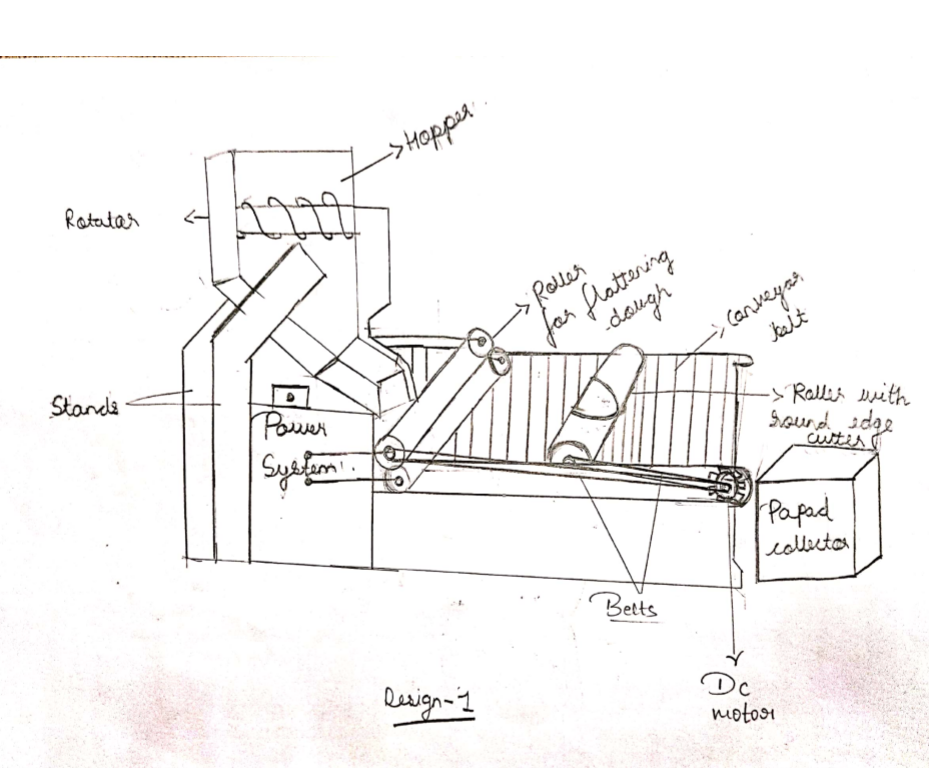 Hopper
Rotator
Roller
for flattening
dough
conveyor
belt
Stands
Roller with
round edge
cutter
Power
System
Papad
collector
Belts
Dc
motor
Design-1